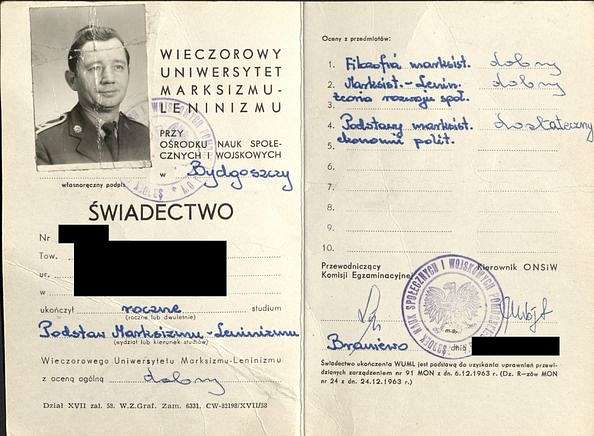 WIECZOROWY
UNIWERSYTET
MARKSIZMU-
LENINIZMU
PRZY
OŚRODKU NAUK SPOŁE-
CZNYCH I WOJSKOWYCH
w Bydgoszczy
własnoręczny podpis
ŚWIADECTWO
Nr
Tow.
ur.
w
ukończył roczne studium
(roczne lub dwuletnie)
Podstaw Marksizmu-Leninizmu
(wydział lub kierunek studiów)
Wieczorowego Uniwersytetu Marksizmu-Leninizmu
z oceną ogólną dobry
Dział XVII zał. 58. W.Z.Graf. Zam. 6331. CW-82198/XVII/58
Oceny z przedmiotów:
1. Filozofia marksist. dobry
2. Marksist.-Lenin. dobry
3. teoria rozwoju społ.
4. Podstawy marksist. dostateczny
5. ekonomii polit.
6.
7.
8.
9.
10.
Przewodniczący Kierownik ONSiW
Komisji Egzaminacyjnej
NAUK SPOŁECZNYCH I WOJSKOWYCH
Braniewo dnia
Świadectwo ukończenia WUML jest podstawą do uzyskania uprawnień przewi-
dzianych zarządzeniem nr 91 MON z dn. 6.12.1963 r. (Dz. R-zów MON
nr 24 z dn. 24.12.1963 r.)